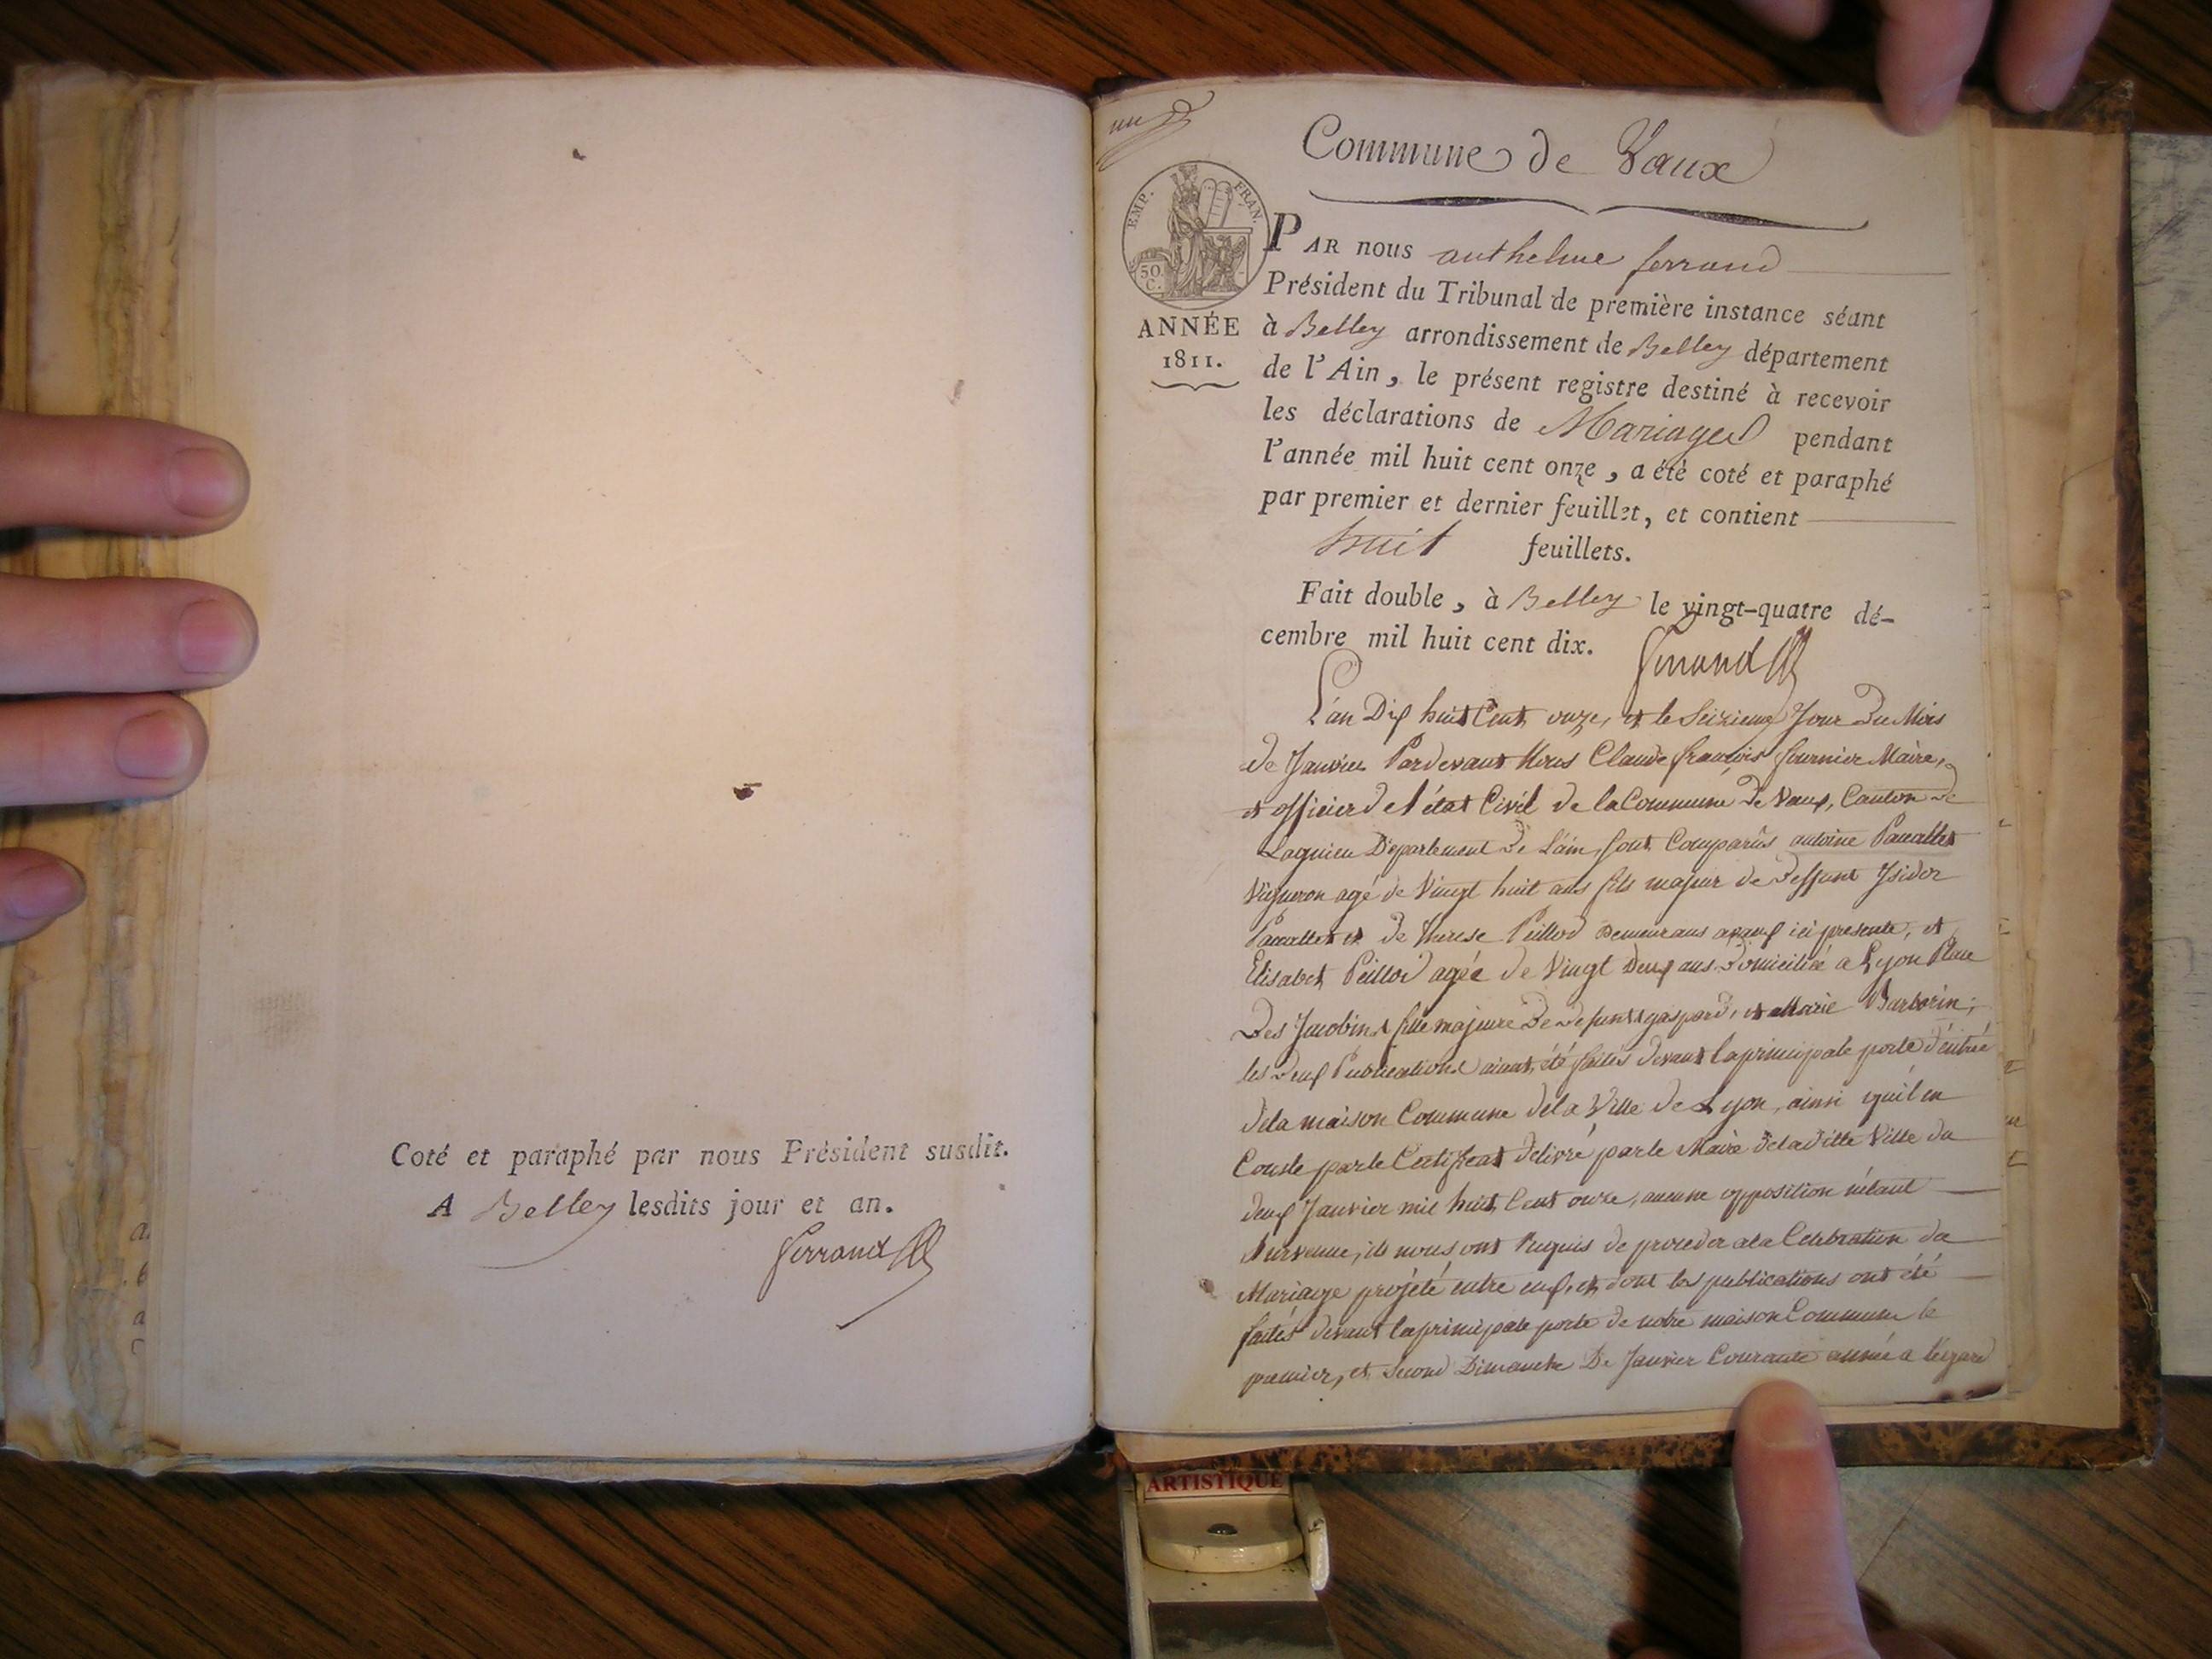 Coté et paraphé par nous Président susdit.
A Belley lesdits jour et an.
Ferrand
un
Commune de Vaux
EMP. FRAN.
50. C.
ANNÉE
1811.
PAR nous anthelme ferrand
Président du Tribunal de première instance séant
à Belley arrondissement de Belley département
de l'Ain, le présent registre destiné à recevoir
les déclarations de Mariages pendant
l'année mil huit cent onze, a été coté et paraphé
par premier et dernier feuillet, et contient
huit feuillets.
Fait double, à Belley le vingt-quatre dé-
cembre mil huit cent dix.
Ferrand
L'an Dix huit Cent onze, et le Seizieme Jour Du Mois
de Janvier Pardevant Nous Claude françois fournier Maire,
et officier de l'état Civil de la Commune de Vaux, Canton de
Lagnieu Département De L'ain, sont Comparûs antoine Paccallet
Vigneron agé de Vingt huit ans fils majeur de deffunt Isidor
Paccallet et de Therese Peillod demeurans a vaux ici presente, et
Elisabet Peillod agée de Vingt Deux ans Domiciliée a Lyon Place
Des Jacobins fille majeure De defunt gaspard, et Marie Barbarin;
les deux Publications aiant été faites devant la principale porte d'éntrée
de la maison Commune de la Ville de Lyon, ainsi qu'il en
Conste par le Certificat délivré par le Maire de la ditte Ville du
deux Janvier mil huit Cent onze, aucune opposition n'étant
survenue, ils nous ont Requis de proceder a la Celebration du
Mariage projété entre eux, et dont les publications ont été
faites devant la principale porte de notre maison Commune le
premier, et second Dimanche De Janvier Courante année a l'égard
ARTISTIQUE